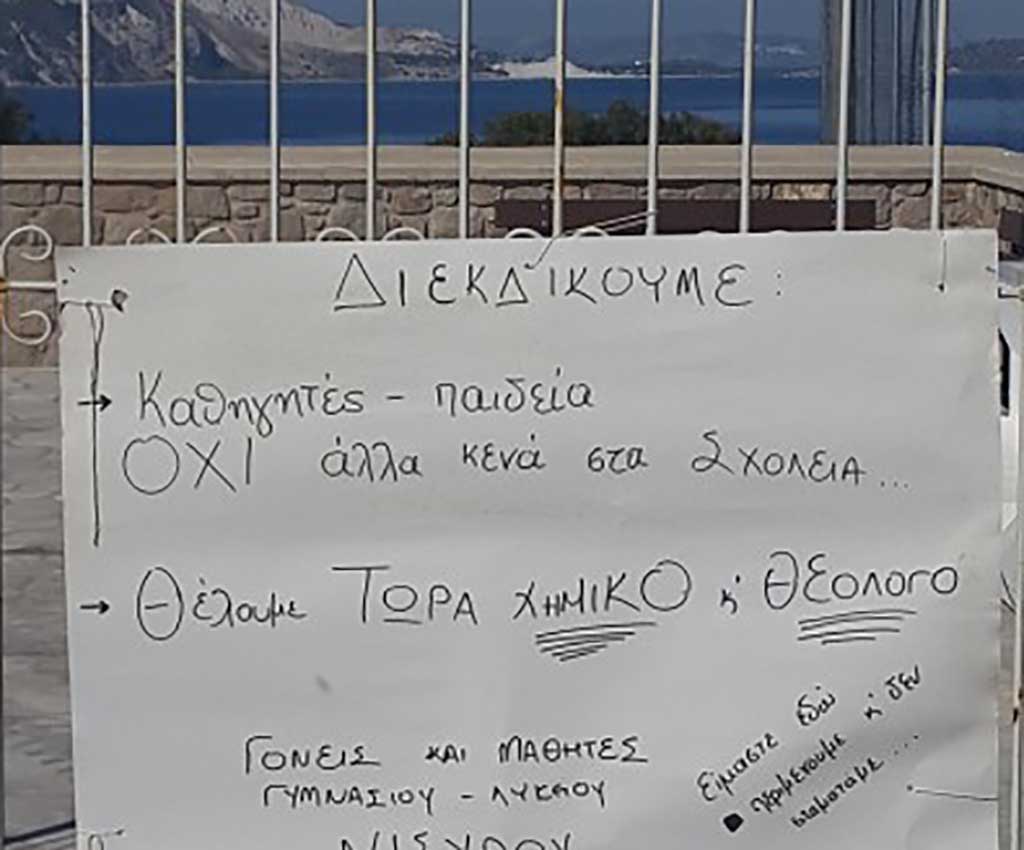 ΔΙΕΚΔΙΚΟΥΜΕ:
→ Καθηγητές - παιδεία
ΟΧΙ άλλα κενά στα ΣΧΟΛΕΙΑ...
→ Θέλουμε ΤΩΡΑ ΧΗΜΙΚΟ κ' ΘΕΟΛΟΓΟ
ΓΟΝΕΙΣ ΚΑΙ ΜΑΘΗΤΕΣ
ΓΥΜΝΑΣΙΟΥ - ΛΥΚΕΙΟΥ
ΝΙΣΥΡΟΥ
Είμαστε εδώ
περιμένουμε κ' δεν
σταματάμε...